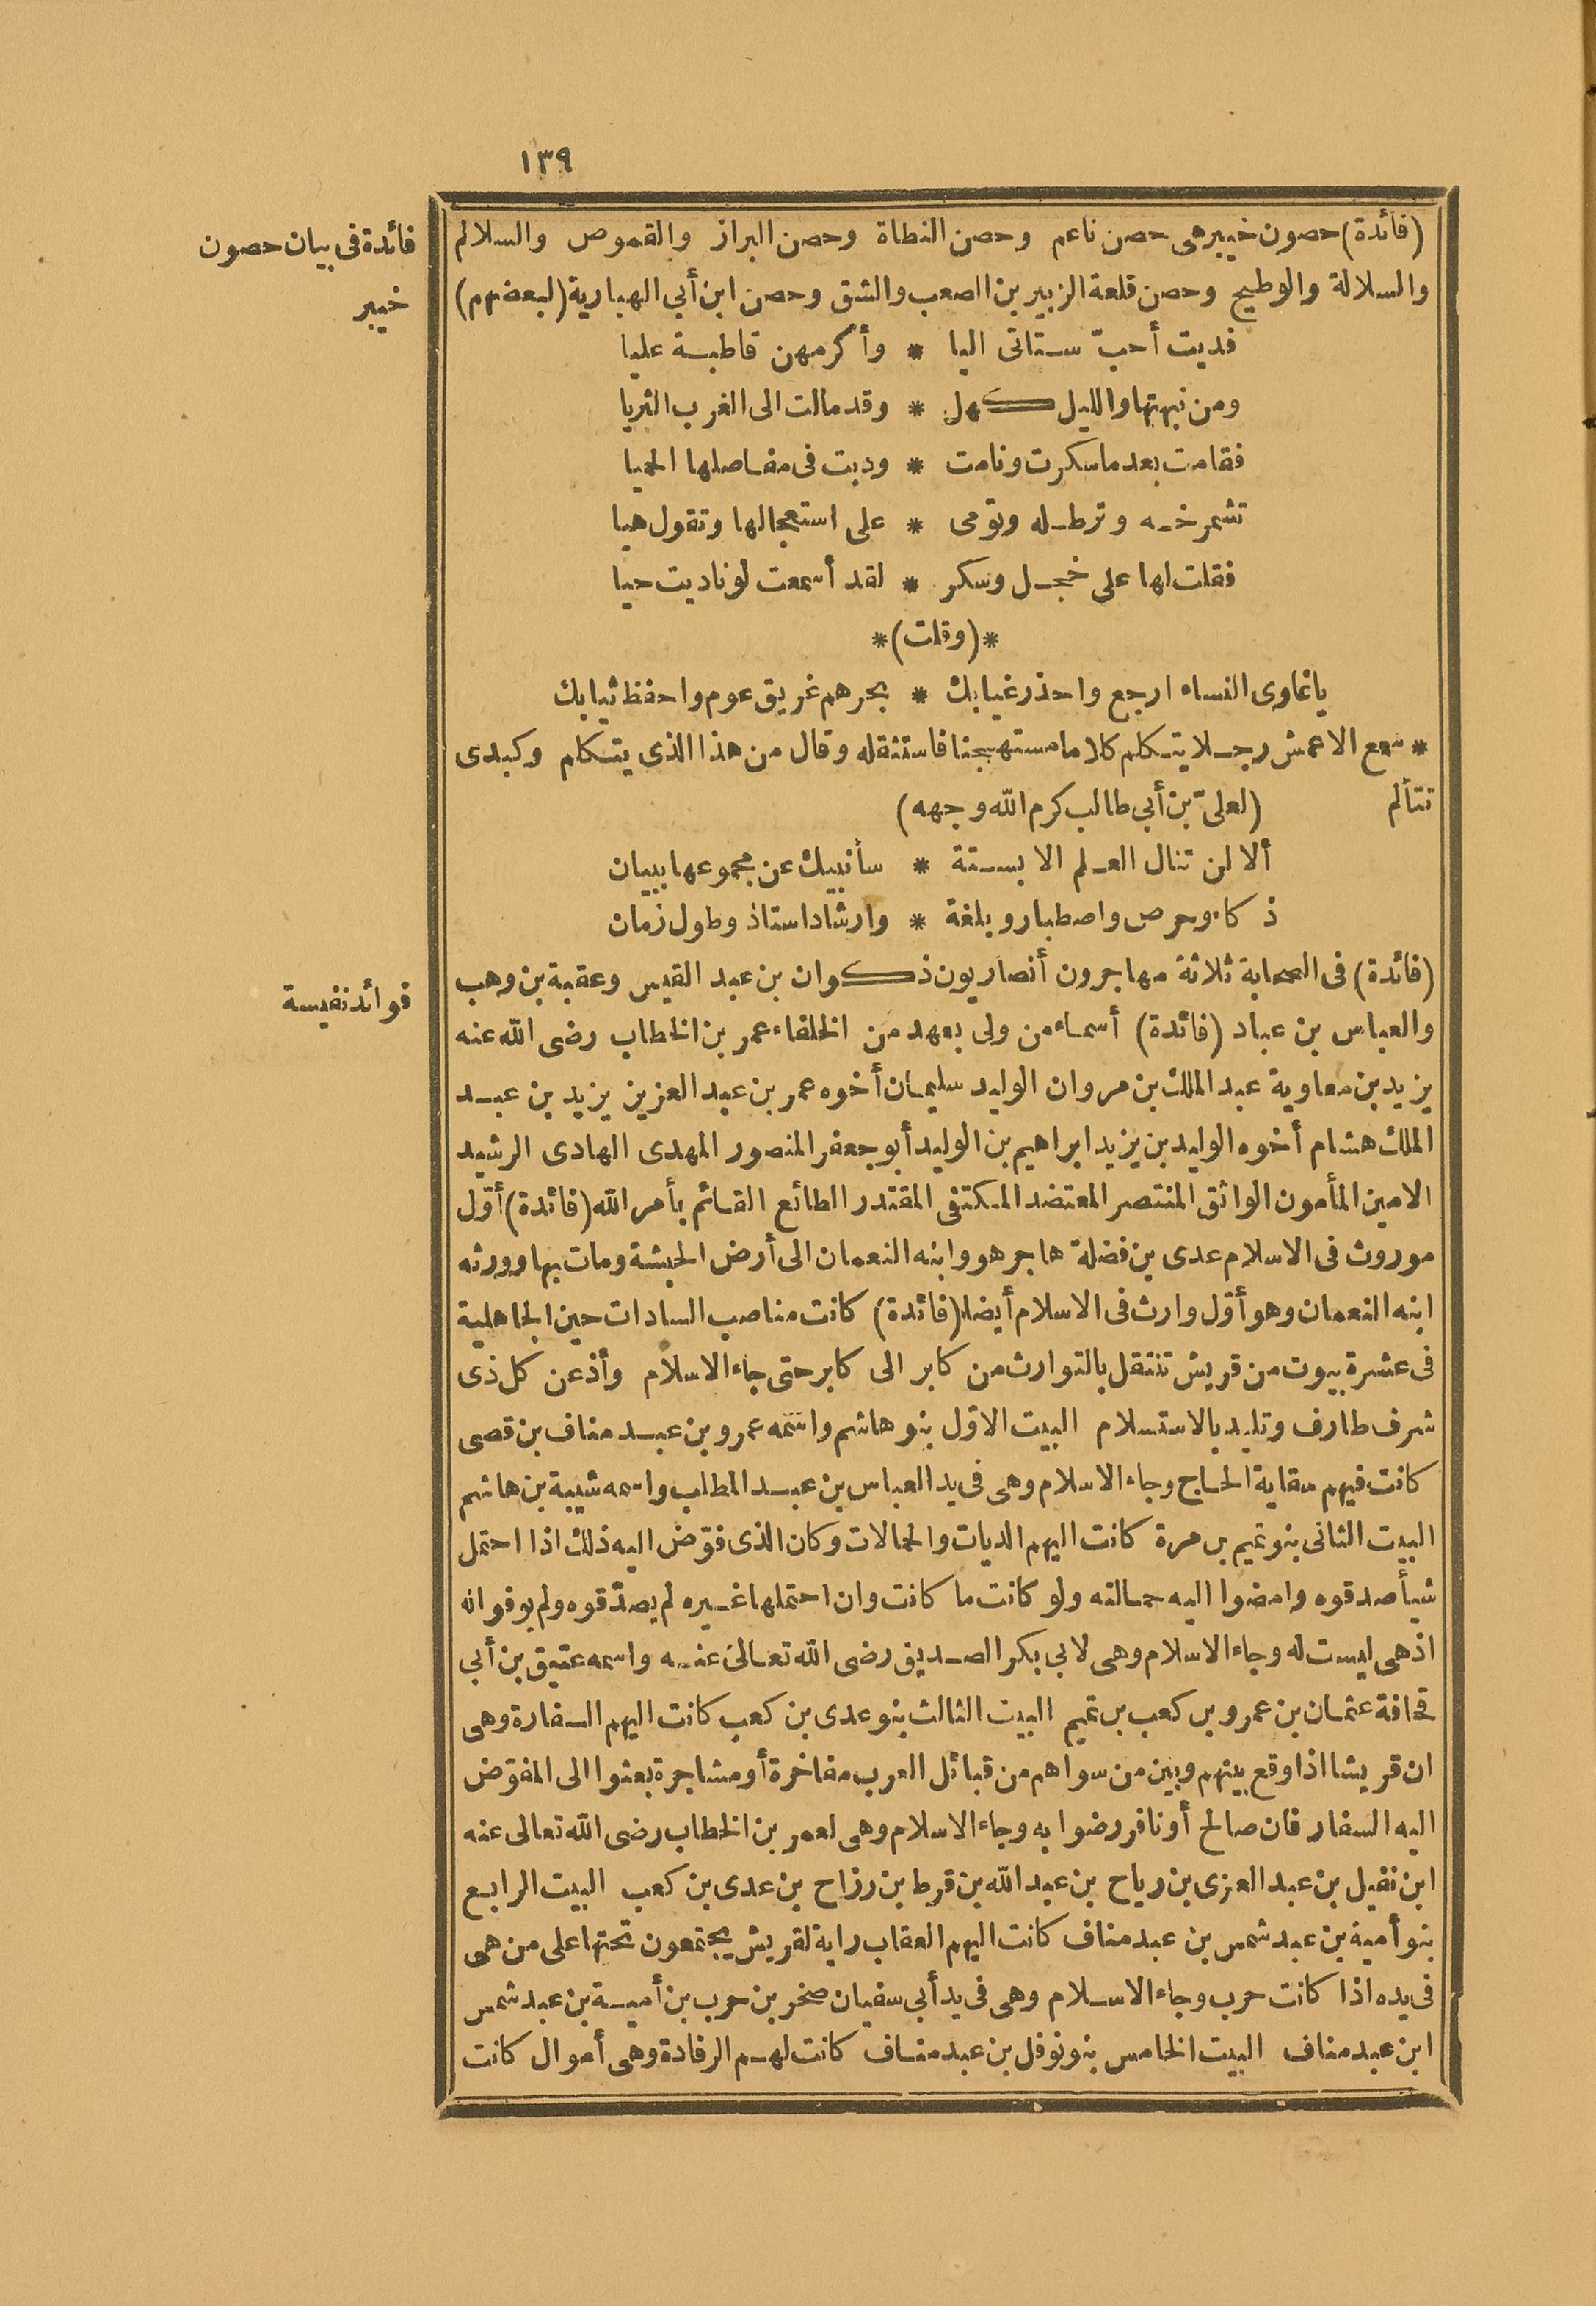 ١٣٩
(فائدة) حصون خيبر هى حصن ناعم وحصن النطاة وحصن البراز والقموص والسلالم
والسلالة والوطيح وحصن قلعة الزبير بن الصعب والشق وحصن ابن أبى الهبارية (لبعضهم)
فائدة فى بيان حصون
خيبر
فديت أحبّ ستاتى اليا * وأكرمهن قاطبة عليا
ومن نبهتها والليل كهل * وقد مالت الى الغرب الثريا
فقامت بعد ما سكرت ونامت * ودبت فى مفاصلها الحميا
تشمرخه وترطله وتومى * على استعجالها وتقول هيا
فقلت لها على خجل وسكر * لقد أسمعت لو ناديت حيا
*(وقلت)*
يا غاوى النساء ارجع واحذر غيابك * بحرهم غريق عوم واحفظ ثيابك
* سمع الاعمش رجلا يتكلم كلاما مستهجنا فاستثقله وقال من هذا الذى يتكلم وكبدى
تتألم (لعلىّ بن أبى طالب كرم الله وجهه)
ألا لن تنال العلم الا بستة * سأنبيك عن مجموعها ببيان
ذكاء وحرص واصطبار وبلغة * وارشاد استاذ وطول زمان
(فائدة) فى الصحابة ثلاثة مهاجرون أنصاريون ذكوان بن عبد القيس وعقبة بن وهب
فوائد نفيسة
والعباس بن عباد (فائدة) أسماء من ولى بعهد من الخلفاء عمر بن الخطاب رضى الله عنه
يزيد بن معاوية عبد الملك بن مروان الوليد سليمان أخوه عمر بن عبد العزيز يزيد بن عبد
الملك هشام أخوه الوليد بن يزيد ابراهيم بن الوليد أبو جعفر المنصور المهدى الهادى الرشيد
الامين المأمون الواثق المنتصر المعتضد المكتفى المقتدر الطائع القائم بأمر الله (فائدة) أوّل
موروث فى الاسلام عدى بن فضلة هاجر هو وابنه النعمان الى أرض الحبشة ومات بها وورثه
ابنه النعمان وهو أوّل وارث فى الاسلام أيضا (فائدة) كانت مناصب السادات حين الجاهلية
فى عشرة بيوت من قريش تنتقل بالتوارث من كابر الى كابر حتى جاء الاسلام وأذعن كل ذى
شرف طارف وتليد بالاستسلام البيت الاوّل بنو هاشم واسمه عمرو بن عبد مناف بن قصى
كانت فيهم سقاية الحاج وجاء الاسلام وهى فى يد العباس بن عبد المطلب واسمه شيبة بن هاشم
البيت الثانى بنو تميم بن مرة كانت اليهم الديات والحمالات وكان الذى فوّض اليه ذلك اذا احتمل
شيأ صدقوه وامضوا اليه حمالته ولو كانت ما كانت وان احتملها غيره لم يصدّقوه ولم يوفوا له
اذ هى ليست له وجاء الاسلام وهى لابى بكر الصديق رضى الله تعالى عنه واسمه عتيق بن أبى
قحافة عثمان بن عمرو بن كعب بن تميم البيت الثالث بنو عدى بن كعب كانت اليهم السفارة وهى
ان قريشا اذا وقع بينهم وبين من سواهم من قبائل العرب مفاخرة أو مشاجرة بعثوا الى المفوّض
اليه السفار فان صالح أو نافر رضوا به وجاء الاسلام وهى لعمر بن الخطاب رضى الله تعالى عنه
ابن نفيل بن عبد العزى بن رياح بن عبد الله بن قرط بن رزاح بن عدى بن كعب البيت الرابع
بنو أمية بن عبد شمس بن عبد مناف كانت اليهم العقاب راية لقريش يجتمعون تحتها على من هى
فى يده اذا كانت حرب وجاء الاسلام وهى فى يد أبى سفيان صخر بن حرب بن أمية بن عبد شمس
ابن عبد مناف البيت الخامس بنو نوفل بن عبد مناف كانت لهم الرفادة وهى أموال كانت